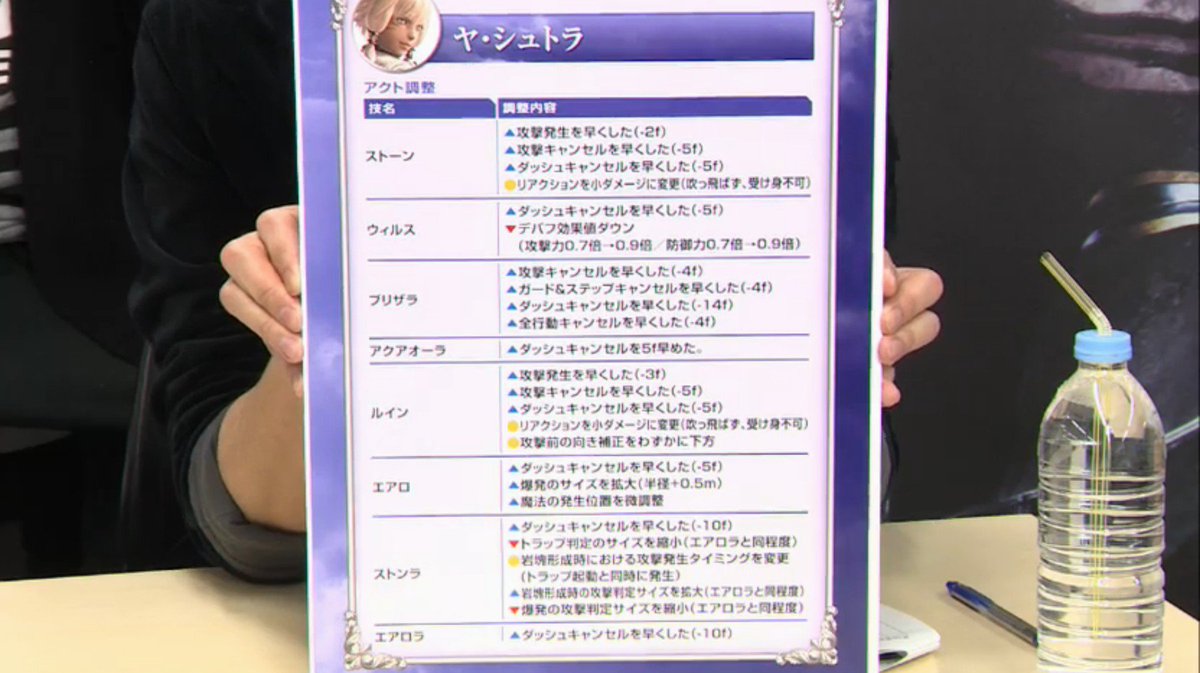 ヤ・シュトラ
アクト調整
技名 調整内容
ストーン
▲攻撃発生を早くした(-2f)
▲攻撃キャンセルを早くした(-5f)
▲ダッシュキャンセルを早くした(-5f)
●リアクションを小ダメージに変更(吹っ飛ばず、受け身不可)
ウィルス
▲ダッシュキャンセルを早くした(-5f)
▼デバフ効果値ダウン
(攻撃力0.7倍→0.9倍/防御力0.7倍→0.9倍)
ブリザラ
▲攻撃キャンセルを早くした(-4f)
▲ガード&ステップキャンセルを早くした(-4f)
▲ダッシュキャンセルを早くした(-14f)
▲全行動キャンセルを早くした(-4f)
アクアオーラ
▲ダッシュキャンセルを5f早めた。
ルイン
▲攻撃発生を早くした(-3f)
▲攻撃キャンセルを早くした(-5f)
▲ダッシュキャンセルを早くした(-5f)
●リアクションを小ダメージに変更(吹っ飛ばず、受け身不可)
●攻撃前の向き補正をわずかに下方
エアロ
▲ダッシュキャンセルを早くした(-5f)
▲爆発のサイズを拡大(半径+0.5m)
▲魔法の発生位置を微調整
ストンラ
▲ダッシュキャンセルを早くした(-10f)
▼トラップ判定のサイズを縮小(エアロラと同程度)
●岩塊形成時における攻撃発生タイミングを変更
(トラップ起動と同時に発生)
▲岩塊形成時の攻撃判定サイズを拡大(エアロラと同程度)
▼爆発の攻撃判定サイズを縮小(エアロラと同程度)
エアロラ
▲ダッシュキャンセルを早くした(-10f)